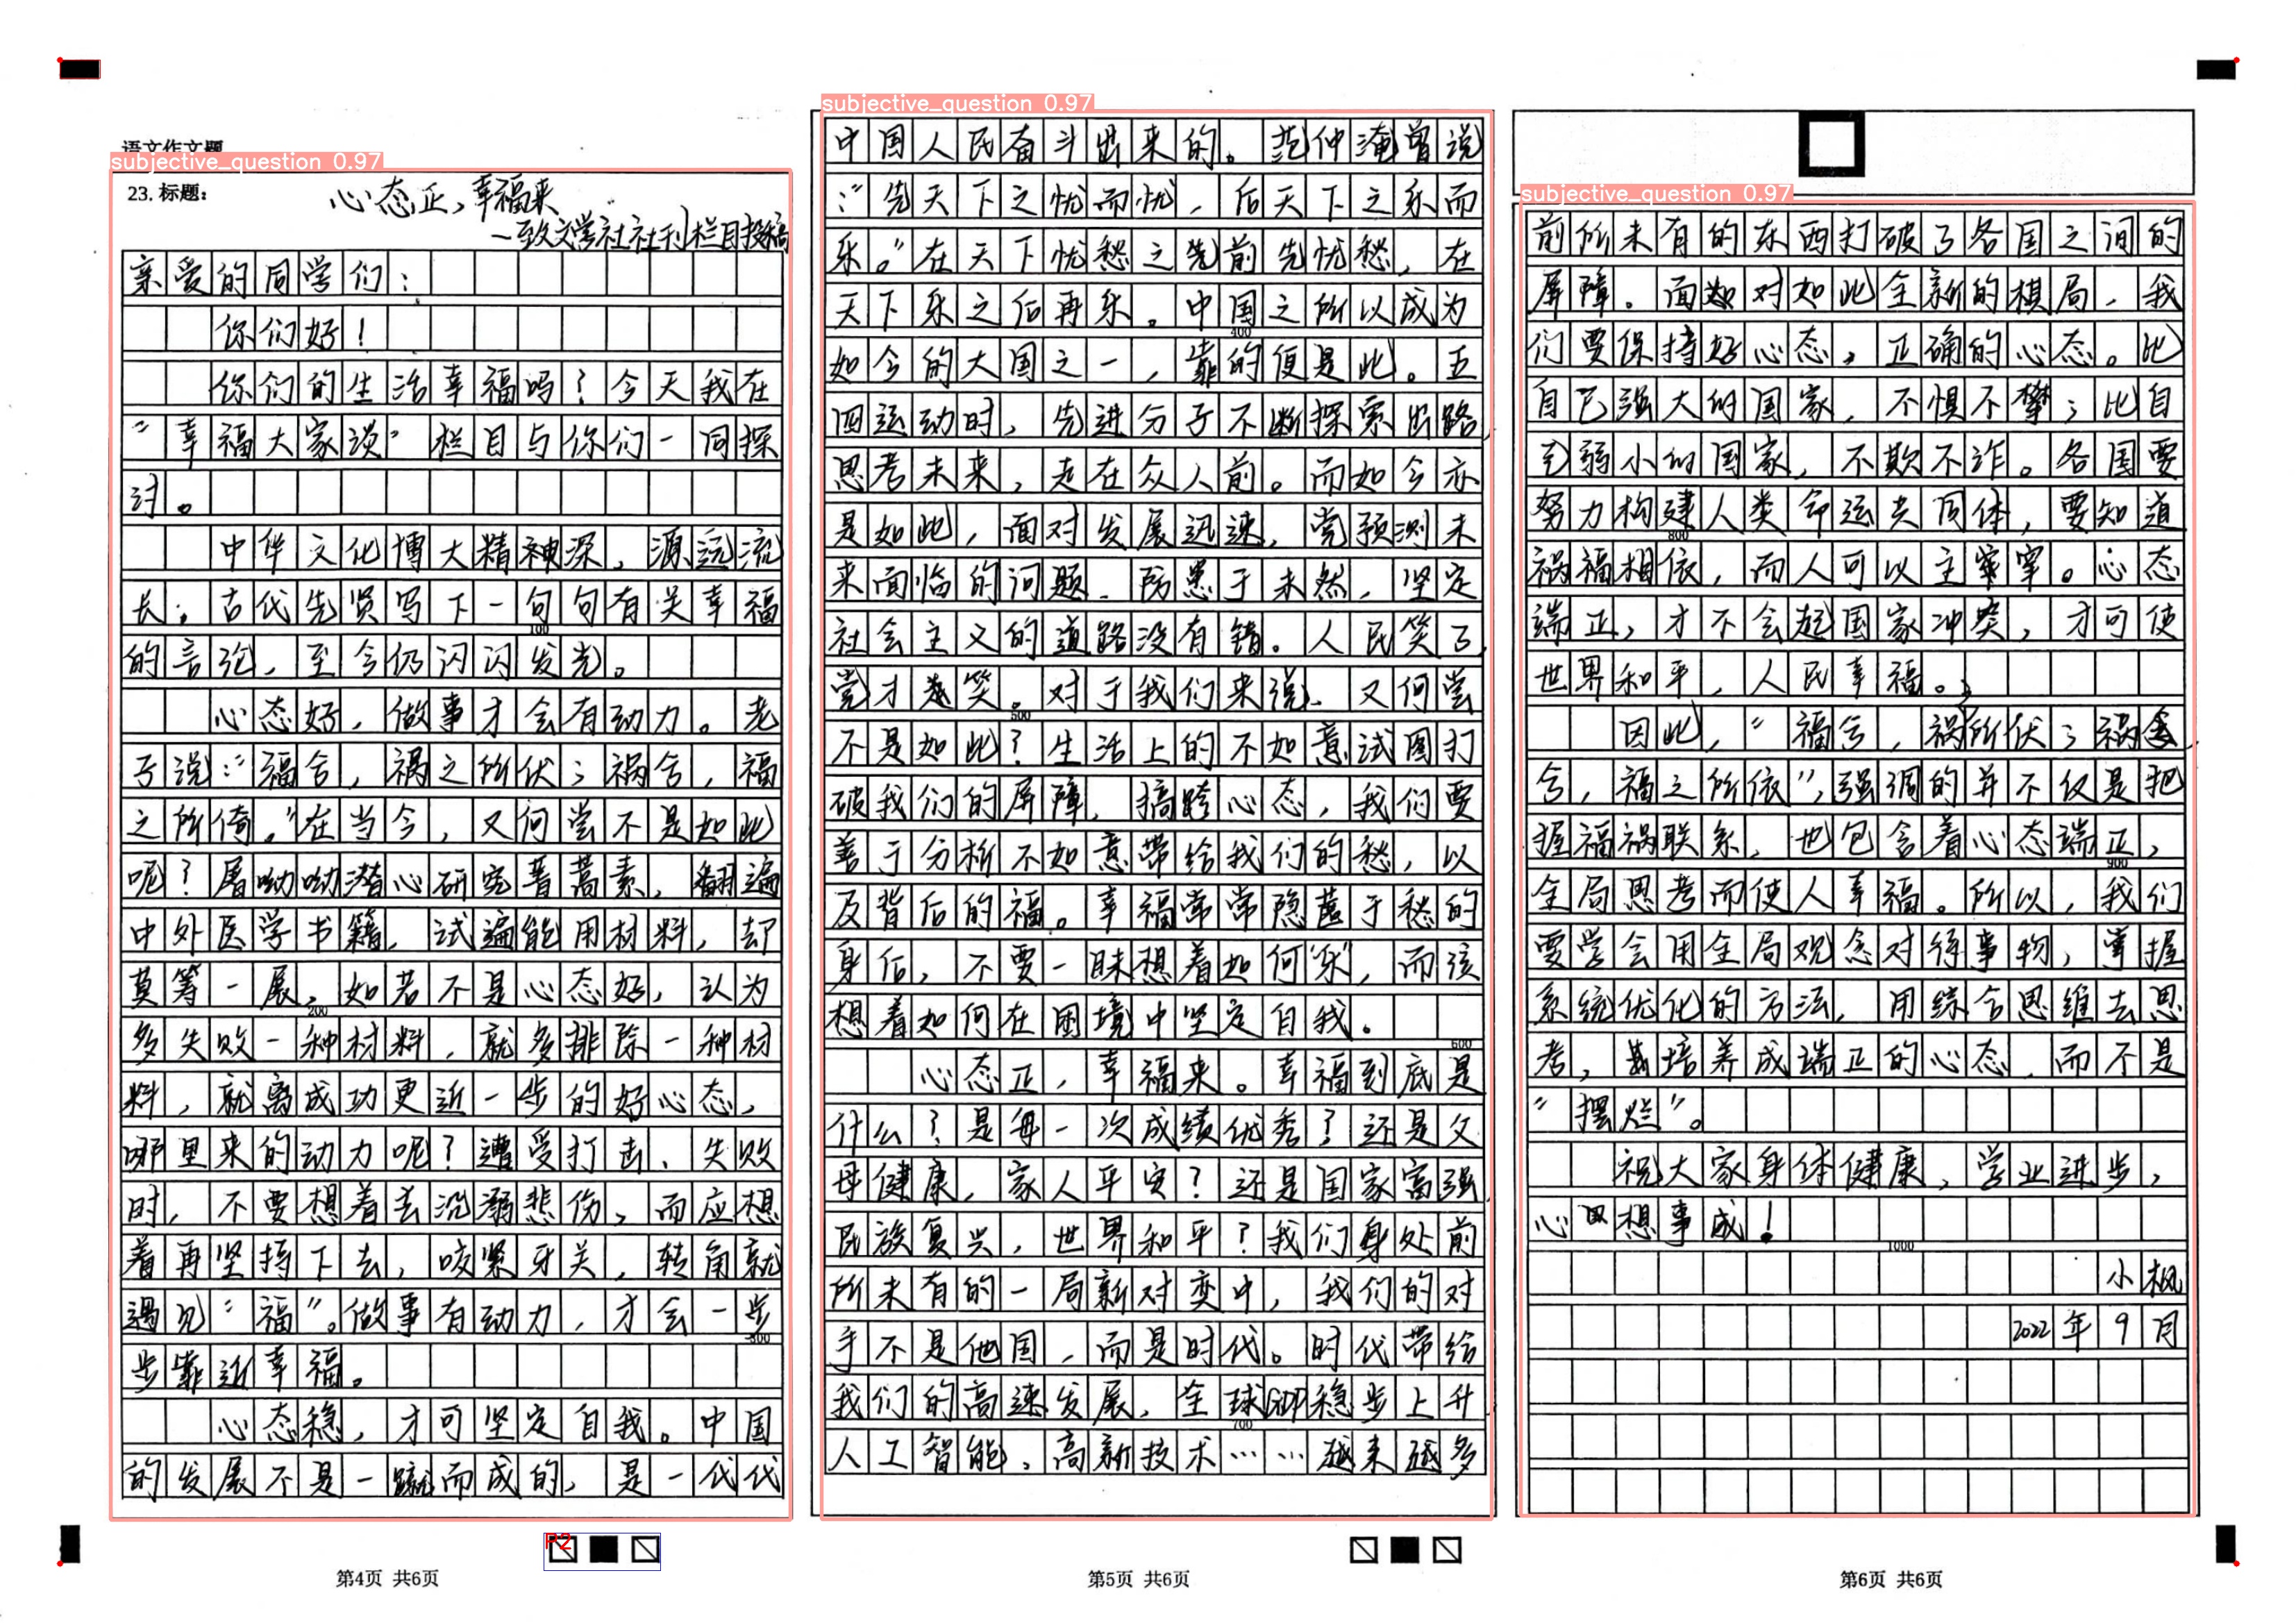 语文作文题
subjective_question 0.97
23. 标题：
心态正，幸福来
—致文学社社刊栏目投稿
亲爱的同学们：
你们好！
你们的生活幸福吗？今天我在
“幸福大家谈”栏目与你们一同探
讨。
中华文化博大精神深，源远流
长；古代先贤写下一句句有关幸福
100
的言论，至今仍闪闪发光。
心态好，做事才会有动力。老
子说：“福兮，祸之所伏；祸兮，福
之所倚。”在当今，又何尝不是如此
呢？屠呦呦潜心研究菁蒿素，翻遍
中外医学书籍，试遍能用材料，却
莫筹一展，如若不是心态好，认为
200
多失败一种材料，就多排除一种材
料，就离成功更近一步的好心态，
哪里来的动力呢？遭受打击、失败
时，不要想着去沉溺悲伤，而应想
着再坚持下去，咬紧牙关，转角就
遇见“福”。做事有动力，才会一步
300
步靠近幸福。
心态稳，才可坚定自我。中国
的发展不是一蹴而成的，是一代代
P2
第4页 共6页
subjective_question 0.97
中国人民奋斗出来的。范仲淹曾说
：“先天下之忧而忧，后天下之乐而
乐。”在天下忧愁之先前先忧愁，在
天下乐之后再乐。中国之所以成为
400
如今的大国之一，靠的便是此。五
四运动时，先进分子不断探索出路，
思考未来，走在众人前。而如今亦
是如此，面对发展迅速，党预测未
来面临的问题，防患于未然，坚定
社会主义的道路没有错。人民笑了，
党才逵笑。对于我们来说，又何尝
500
不是如此？生活上的不如意试图打
破我们的屏障，搞跨心态，我们要
善于分析不如意带给我们的愁，以
及背后的福。幸福常常隐蓝于愁的
身后，不要一昧想着如何“乐”，而该
想着如何在困境中坚定自我。
600
心态正，幸福来。幸福到底是
什么？是每一次成绩优秀？还是父
母健康，家人平安？还是国家富强，
民族复兴，世界和平？我们身处前
所未有的一局新对变中，我们的对
手不是他国，而是时代。时代带给
我们的高速发展，全球GDP稳步上升
700
人工智能、高新技术……越来越多
第5页 共6页
subjective_question 0.97
前所未有的东西打破了各国之间的
屏障。面对如此全新的棋局，我
们要保持好心态，正确的心态。比
自己强大的国家，不惧不攀；比自
己弱小的国家，不欺不诈。各国要
努力构建人类命运共同体，要知道
800
祸福相依，而人可以主宰。心态
端正，才不会起国家冲突，才可使
世界和平，人民幸福。
因此，“福兮，祸所伏；祸
兮，福之所依”，强调的并不仅是把
握福祸联系，也包含着心态端正，
900
全局思考而使人幸福。所以，我们
要学会用全局观念对待事物，掌握
系统优化的方法，用综合思维去思
考，培养成端正的心态，而不是
“摆烂”。
祝大家身体健康，学业进步，
心想事成！
1000
小枫
2022年9月
第6页 共6页